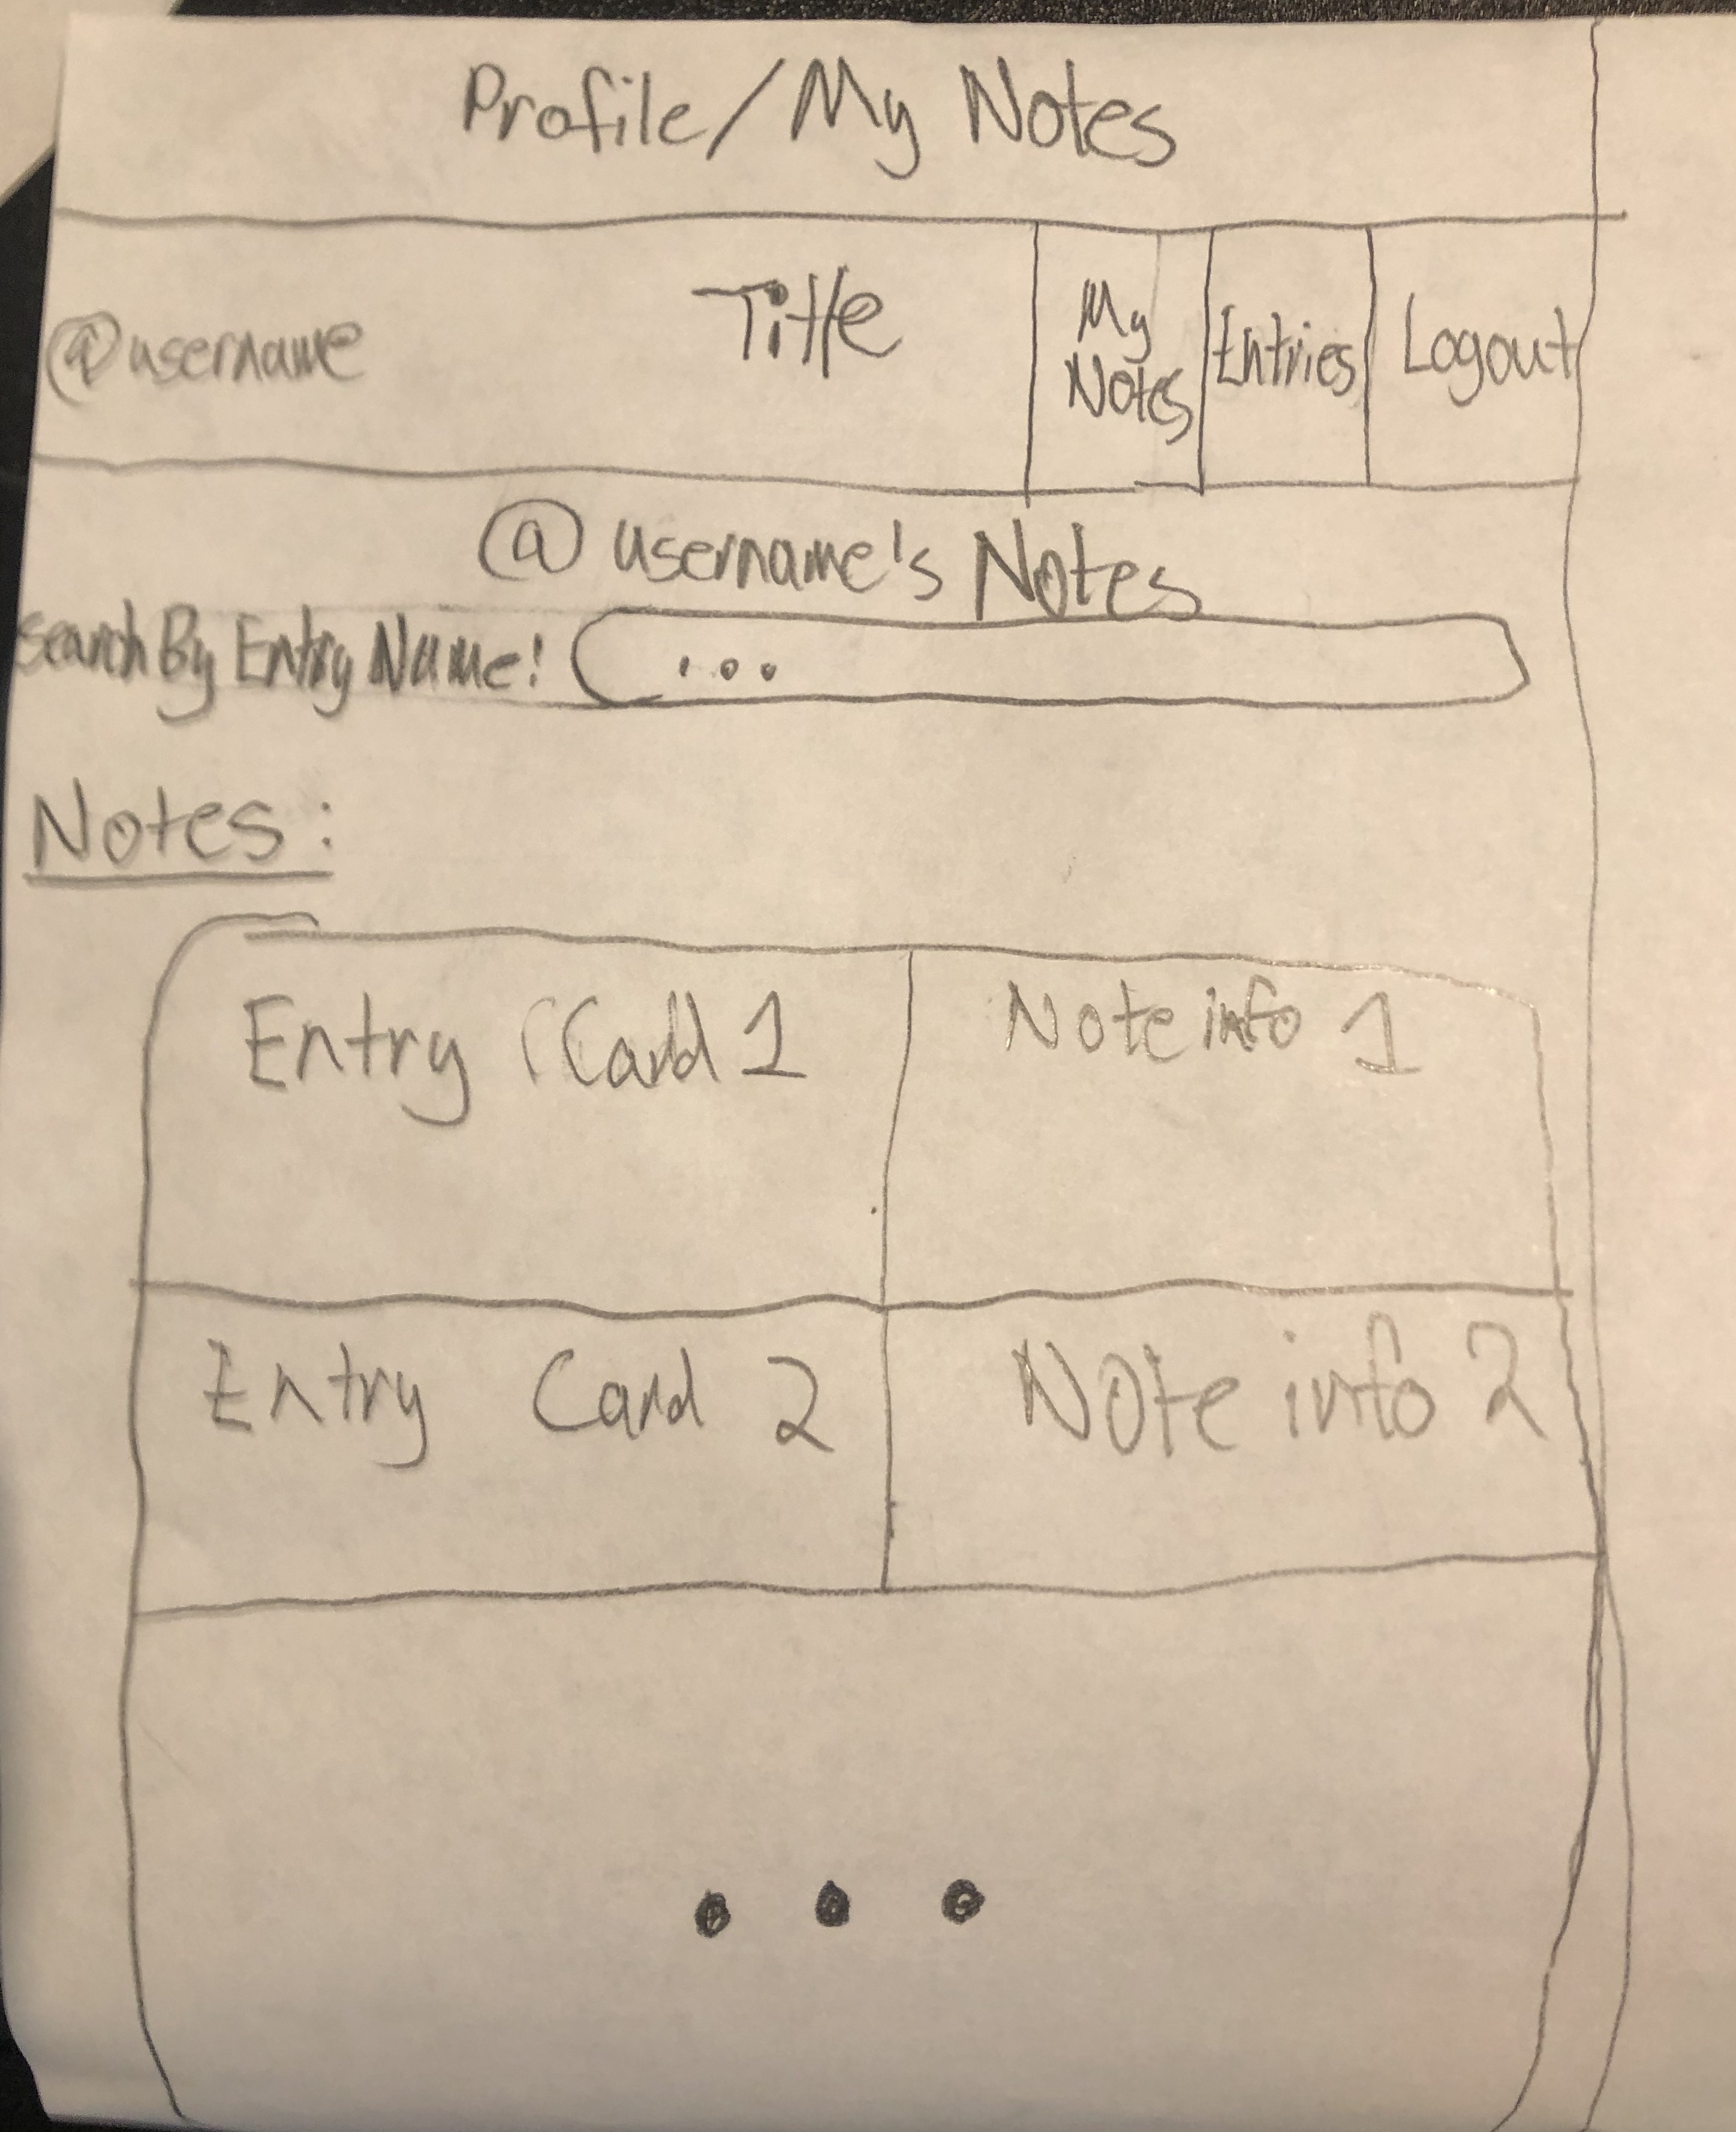 Profile/My Notes
@username Title My Notes Entries Logout
@username's Notes
Search By Entry Name: ...
Notes:
Entry Card 1 Note info 1
Entry Card 2 Note info 2
...